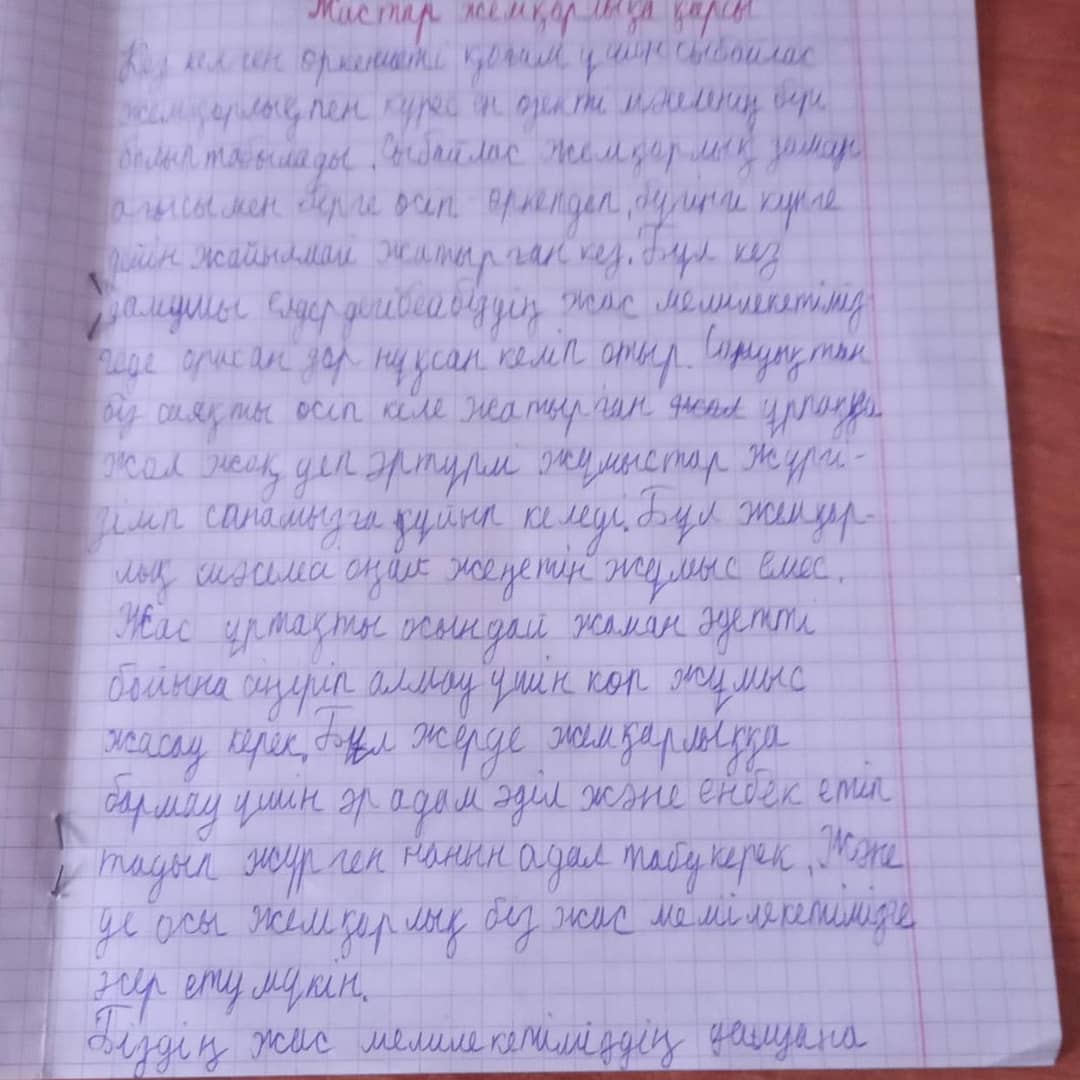 Жастар жемқорлыққа қарсы
Кез келген өркениетті қоғам үшін сыбайлас
жемқорлықпен күрес ең өзекті мәселенің бірі
болып табылады. Сыбайлас жемқорлық заман
ағысымен бірге өсіп өркендеп, бүгінгі күнге
дейін жойылмай жатырған кез. Бұл кез
дамушы елдердегі біздің жас мемлекетіміз
геде орасан зор нұқсан келіп отыр. Сондықтан
біз сияқты өсіп келе жатырған жас ұрпаққа
жол жоқ деп әртүрлі жұмыстар жүргі-
зіліп санамызға құйып келеді. Бұл жемқор-
лық мәселесі оңай жеңетін жұмыс емес.
Жас ұрпақты осындай жаман әдетті
бойына сіңіріп алмау үшін көп жұмыс
жасау керек. Бұл жерде жемқарлыққа
бармау үшін әр адам әділ және еңбек етіп
тауып жүрген нанын адал табу керек. Және
де осы жемқорлық без жас мемілекетімізге
әсер ету мүкін.
Біздің жас мемлекетіміздің дамуына